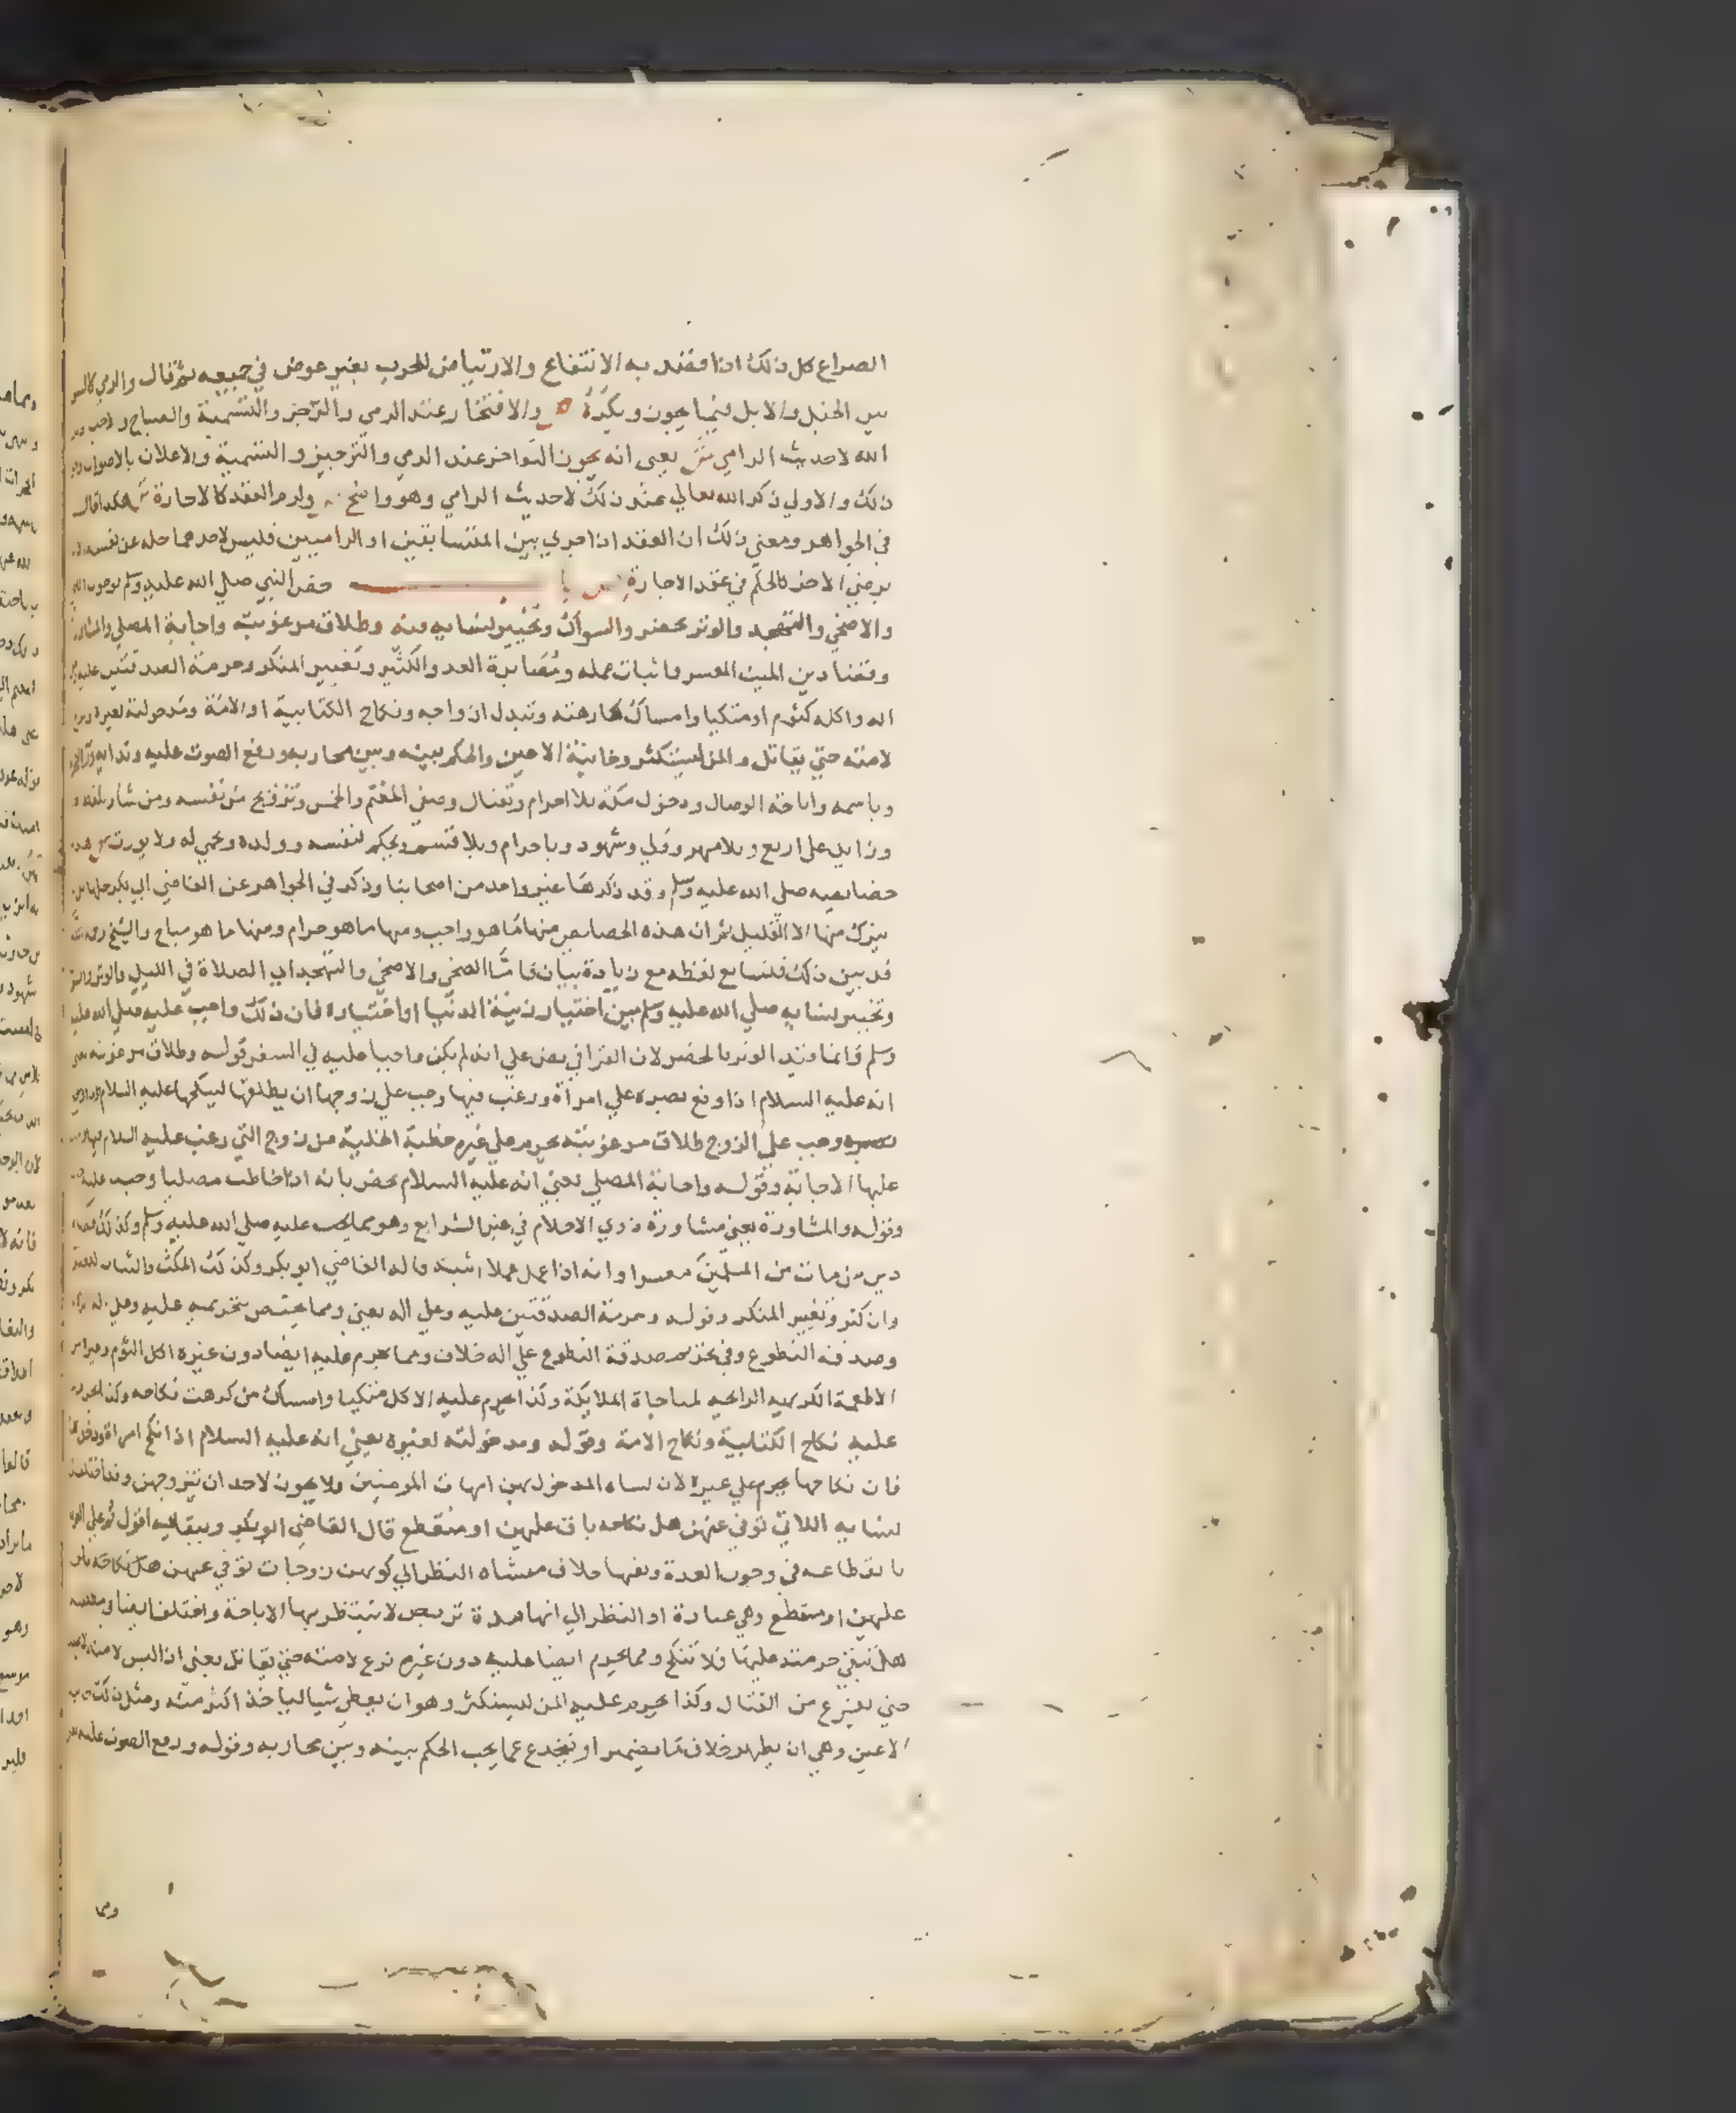 الصراع كل ذلك اذا قصد به الانتفاع والارتياض للحرب بغير عوض في جميعه ثم قال والرمي كالسبق
بين الخيل والابل فيما يجوز ويكره ص والافتخار عند الرمي والرجز والتسمية والصياح والاحب ذكر
الله لاحديث الرامي ش يعني انه يجوز التفاخر عند الرمي والترجيز والتسمية والاعلان بالاصوات
ذلك والاولي ذكر الله تعالي عند ذلك لاحديث الرامي وهو واضح ص ولزم العقد كالاجارة ش هكذا قال
في الجواهر ومعني ذلك ان العقد اذا جري بين المتسابقين او الراميين فليس لاحدهما حله عن نفسه
برضي الاخر كالحكم في عقد الاجارة ص باب خص النبي صلي الله عليه وسلم بوجوب
والاضحي والتهجد والوتر بحضر والسواك وتخيير نسايه فيه وطلاق مرغوبته واجابة المصلي والمشاورة
وقضا دين الميت المعسر واثبات عمله ومصابرة العدو الكثير وتغيير المنكر وحرمة الصدقتين عليه
اله واكله كثوم او متكيا وامساك كارهته وتبدل ازواجه ونكاح الكتابية او الامة ومدخولته لغيره
لامته حتي يقاتل والمن ليستكثر وخاينة الاعين والحكم بينه وبين محاربه ورفع الصوت عليه وندايه
وباسمه واباحة الوصال ودخول مكة بلا احرام وقتال وصفي المغنم والخمس وتزويج من نفسه ومن شا
وزايد علي اربع وبلا مهر وولي وشهود وباحرام وبلا قسم ويحكم لنفسه وولده ويحمي له ولا يورث ش هذه
خصايصه صلي الله عليه وسلم وقد ذكرها غير واحد من اصحابنا وذكر في الجواهر عن القاضي ابي بكر جملة
يترك منها الا القليل ثم ان هذه الخصايص منها ما هو واجب ومنها ما هو حرام ومنها ما هو مباح والشيخ رحمه الله
قد بين ذلك فلنتابع لفظه مع زيادة بيان فاما الضحي والاضحي والتهجد اي الصلاة في الليل والوتر
وتخيير نسايه صلي الله عليه وسلم بين اختيار زينة الدنيا او اختياره فان ذلك واجب عليه صلي الله عليه
وسلم وانما قيد الوتر بالحضر لان القرافي نص علي انه لم يكن واجبا عليه في السفر قوله وطلاق مرغوبته
انه عليه السلام اذا وقع بصره علي امراة ورغب فيها وجب علي زوجها ان يطلقها لينكحها عليه السلام
بصره وجب علي الزوج طلاق مرغوبته يحرم علي غيره خطبة الخلية من زوج التي رغب عليه السلام فيها
عليها الاجابة وقوله واجابة المصلي يعني انه عليه السلام يخص بانه اذا خاطب مصليا وجب عليه
وقوله والمشاورة يعني مشاورة ذوي الاحلام في غير الشرايع وهو مما يجب عليه صلي الله عليه وسلم وكذلك قضا
دين من مات من المسلمين معسرا وانه اذا عمل عملا اثبته قاله القاضي ابو بكر وكذلك المكث والثبات للعدو
وان كثر وتغيير المنكر وقوله وحرمة الصدقتين عليه وعلي اله يعني ومما يختص بتحريمه عليه وعلي اله
وصدقة التطوع وفي تحريم صدقة التطوع علي اله خلاف ومما يحرم عليه ايضا دون غيره اكل الثوم
الاطعمة الكريهة الرايحة لمناجاة الملايكة وكذا يحرم عليه الاكل متكيا وامساك من كرهت نكاحه وكذا يحرم
عليه نكاح الكتابية ونكاح الامة وقوله ومدخولته لغيره يعني انه عليه السلام اذا نكح امراة ودخل بها
فان نكاحها يحرم علي غيره لان نساه المدخول بهن امهات المومنين ولا يجوز لاحد ان يتزوجهن وقد اختلف
نسايه اللاتي توفي عنهن هل نكاحه باق عليهن او منقطع قال القاضي ابو بكر وببقايه اقول
بانقطاعه في وجوب العدة ونفيها خلاف منشاه النظر الي كونهن زوجات توفي عنهن هل نكاحه باق
عليهن او منقطع وهي عبادة او النظر الي انها مدة تربص لا ينتظر بها الاباحة واختلف ايضا
هل تبقي حرمته عليها فلا تنكح ومما يحرم ايضا عليه دون غيره نزع لامته حتي يقاتل يعني اذا لبس لامته
حتي يفرغ من القتال وكذا يحرم عليه المن ليستكثر وهو ان يعطي شيا لياخذ اكثر منه ومثل ذلك
الاعين وهي ان يظهر خلاف ما يضمر او ينخدع عما يجب الحكم بينه وبين محاربه وقوله ورفع الصوت عليه
ومما